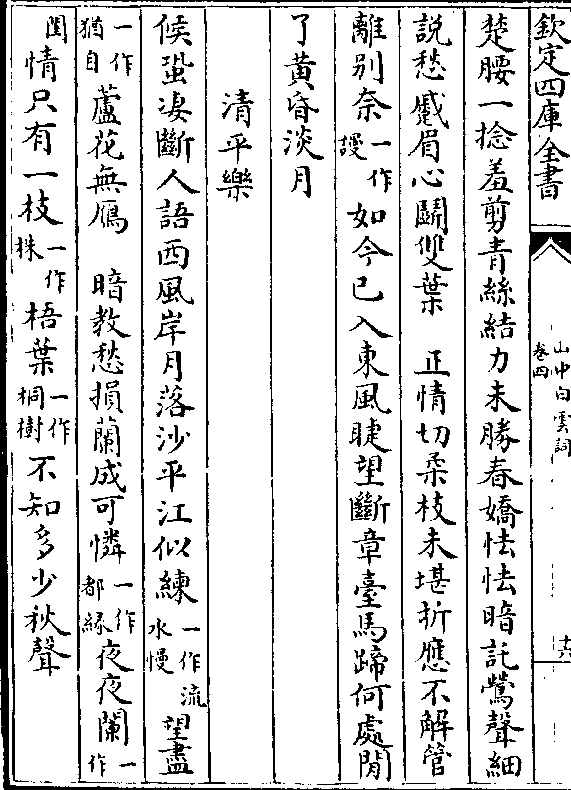 欽定四庫全書
山中白雲詞
卷四
十六
楚腰一捻羞剪青絲結力未勝春嬌怯怯暗託鶯聲細
說愁蹙眉心鬬雙葉　正情切柔枝未堪折應不解管
離别奈一作謾如今已入東風睫望斷章臺馬蹄何處閒
了黄昏淡月
清平樂
候蛩凄斷人語西風岸月落沙平江似練一作流水慢望盡
一作猶自蘆花無鴈　暗教愁損蘭成可憐一作都緣夜夜闌一作
閨情只有一枝一作株梧葉一作桐樹不知多少秋聲